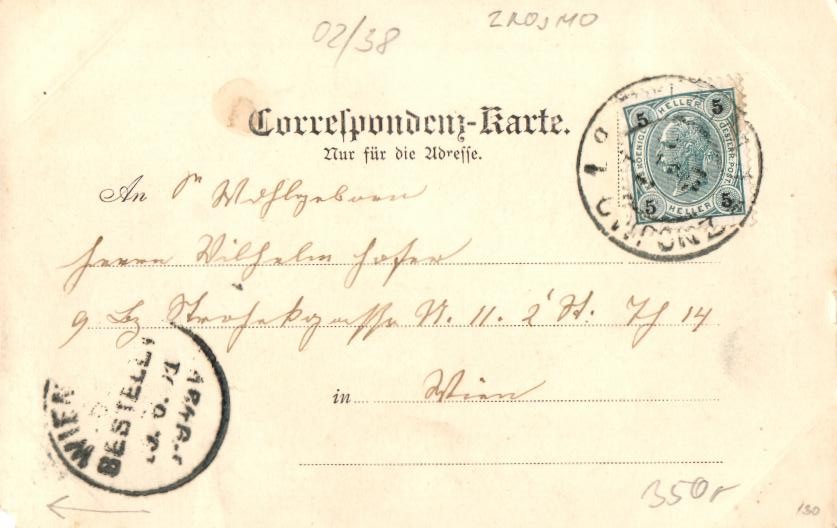 02/38
ZROJMO
Correspondenz-Karte.
Nur für die Adresse.
An Sr Wohlgeboren
Herrn Wilhelm Hofer
9 Bz N. 11. 2' St. Th 14
in Wien
5 HELLER 5
5 HELLER 5
ZNOJMO
WIEN
BESTELLT
350,-
130